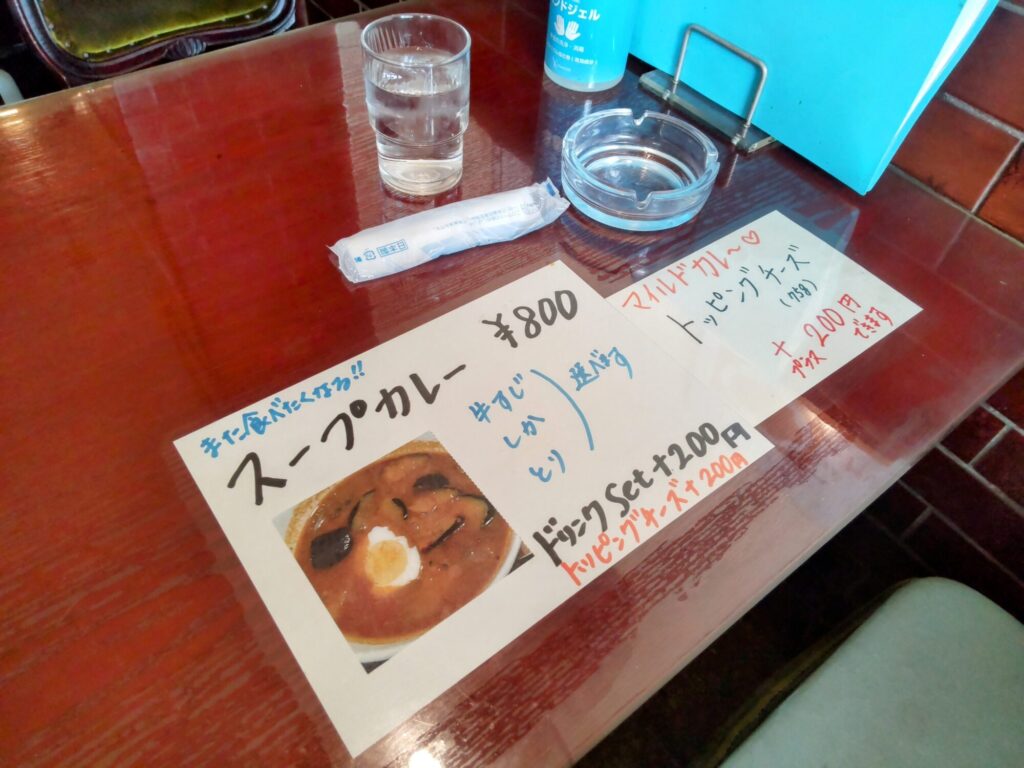 ンドジェル
日本製
また食べたくなる!!
スープカレー ¥800
牛すじ
しか
とり
選べます
ドリンクSet+200円
トッピングチーズ+200円
マイルドカレ〜♡
トッピングチーズ
(75g)
+200円
プラス
できます